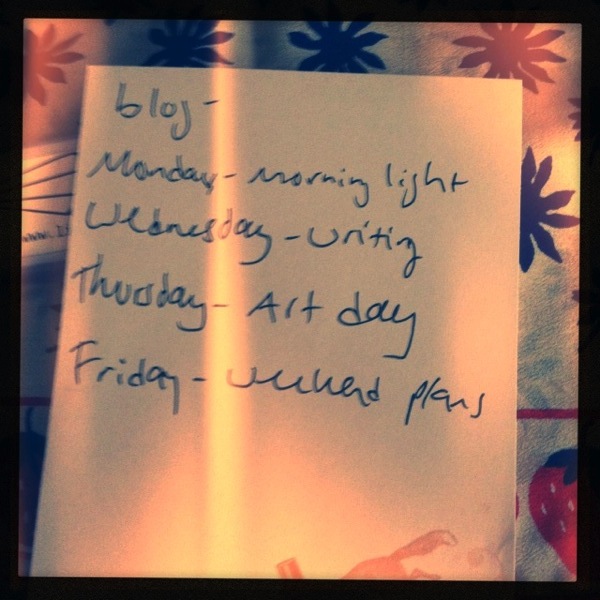 blog-
Monday- Morning light
Wednesday-writing
Thursday- Art day
Friday- weekend plans